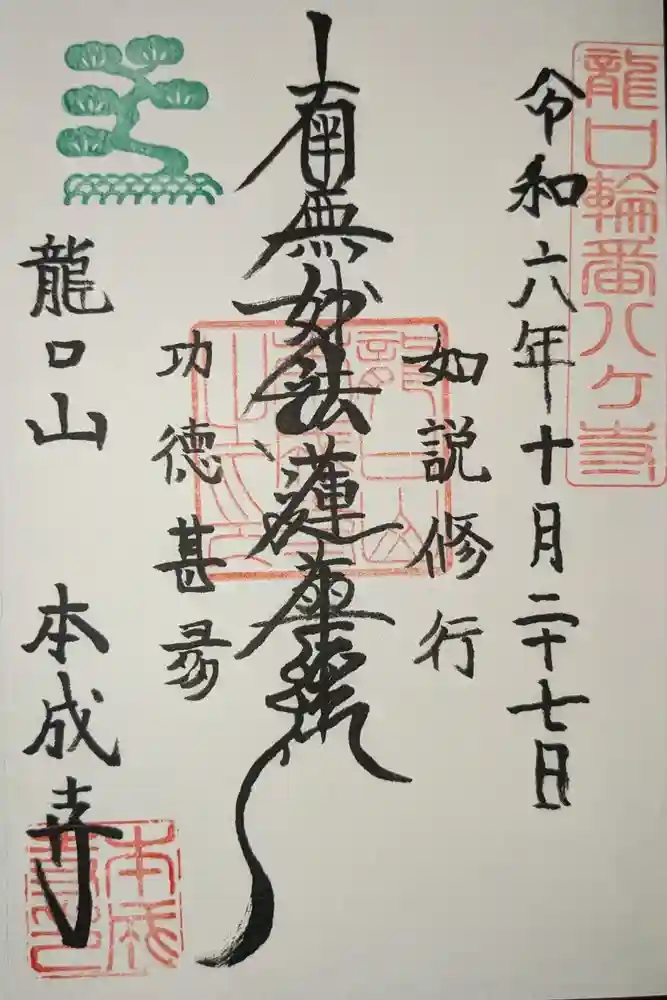 龍口輪番八ケ寺
令和六年十月二十七日
如説修行
南無妙法蓮華経
功徳甚多
龍口山 本成寺
本成